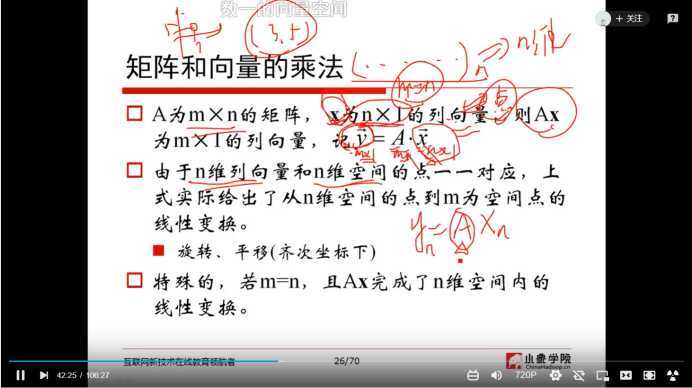 数一的向量空间
+ 关注
(3,5)
n
⇒ n维
矩阵和向量的乘法
m=n
点
A为m×n的矩阵，x为n×1的列向量，则Ax
为m×1的列向量，记 y = A·x
m×1 m×n n×1
由于n维列向量和n维空间的点一一对应，上
式实际给出了从n维空间的点到m为空间点的
线性变换。
yₙ = A Xₙ
旋转、平移(齐次坐标下)
特殊的，若m=n，且Ax完成了n维空间内的
线性变换。
互联网新技术在线教育领航者
26/70
小象学院
ChinaHadoop.cn
42:25 / 106:27
720P